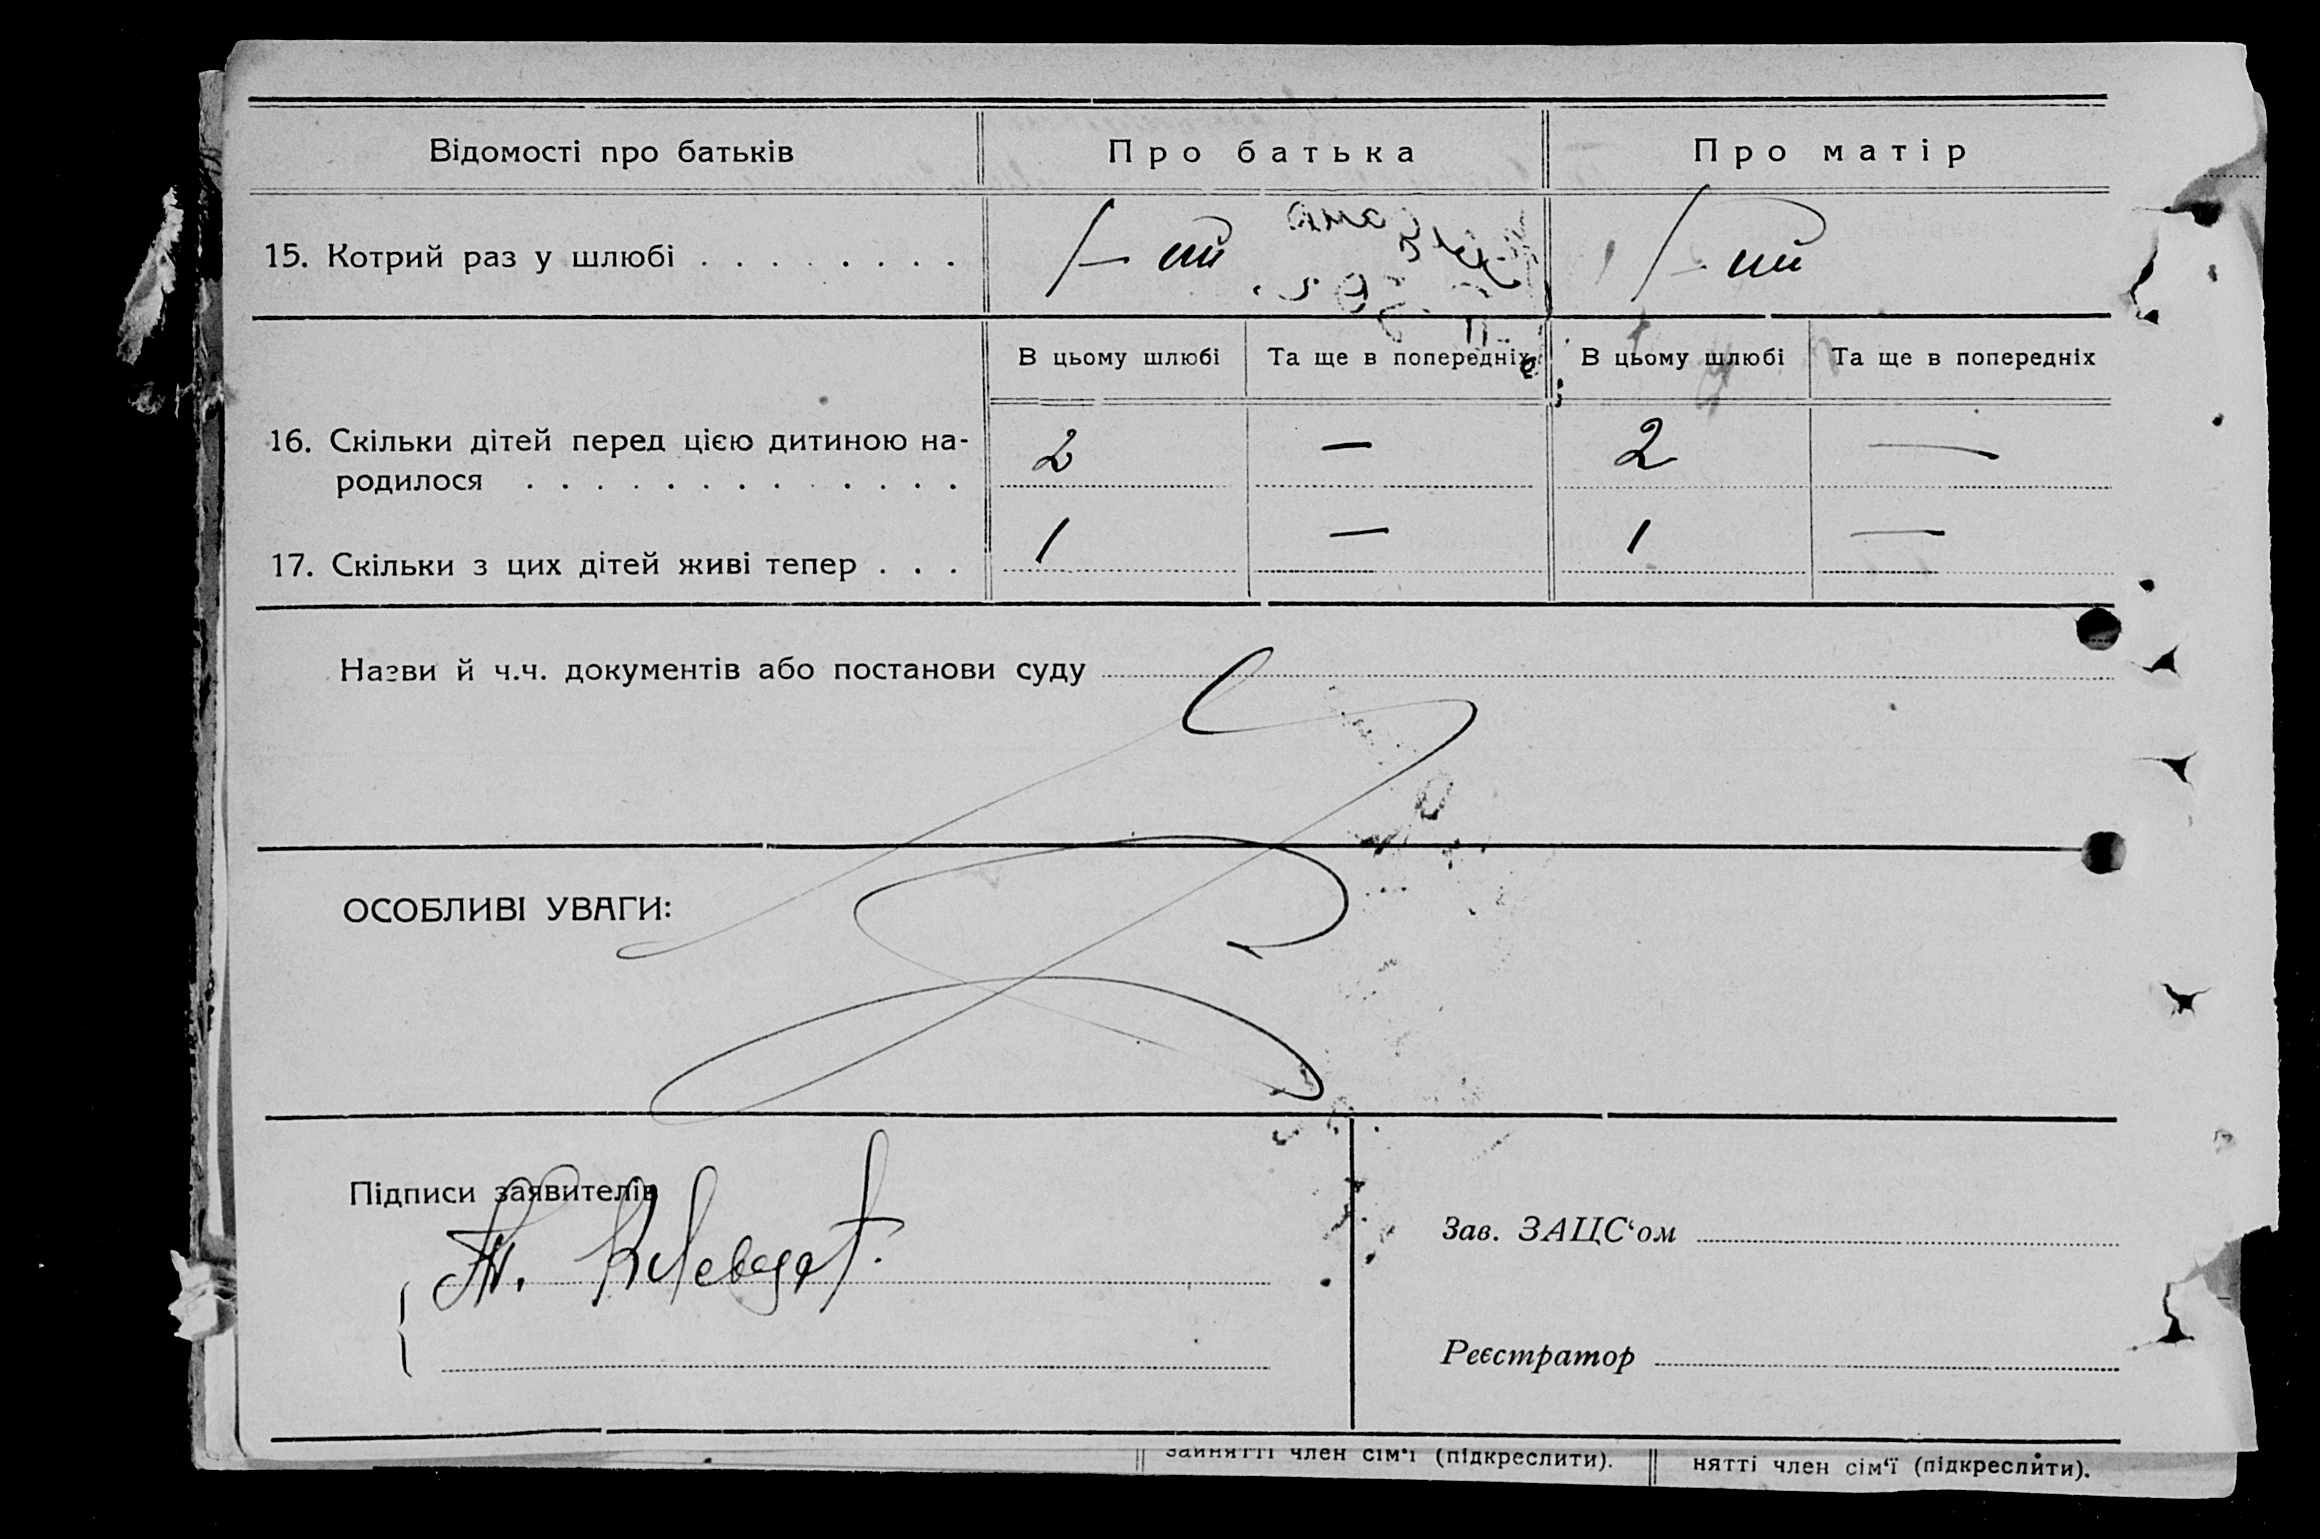 Відомості про батьків Про батька Про матір
15. Котрий раз у шлюбі . . . . . . . . 1-ий 1-ий
В цьому шлюбі Та ще в попередніх В цьому шлюбі Та ще в попередніх
16. Скільки дітей перед цією дитиною на- 2 — 2 —
родилося . . . . . . . . . . . . .
17. Скільки з цих дітей живі тепер . . . 1 — 1 —
Назви й ч.ч. документів або постанови суду
ОСОБЛИВІ УВАГИ:
Підписи заявителів
Зав. ЗАЦС‘ом
Реєстратор
зайнятті член сім‘ї (підкреслити). нятті член сім‘ї (підкреслити).